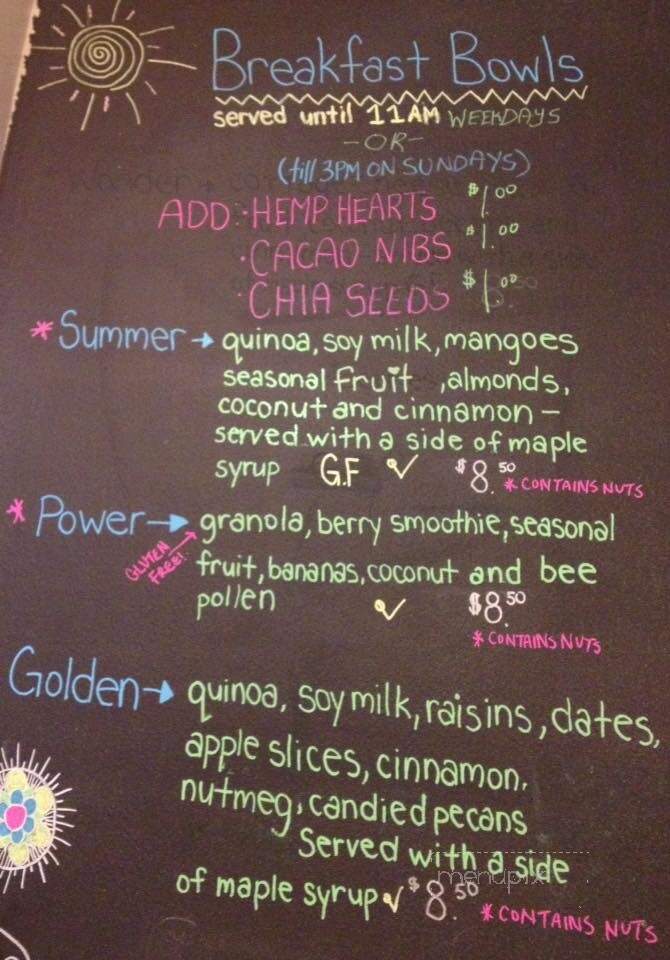 Breakfast Bowls
served until 11AM WEEKDAYS
-OR-
(till 3PM ON SUNDAYS)
ADD ·HEMP HEARTS $1.00
·CACAO NIBS $1.00
·CHIA SEEDS $1.00
*Summer→ quinoa, soy milk, mangoes
seasonal fruit, almonds,
coconut and cinnamon –
served with a side of maple
syrup G.F ✓ $8.50 *CONTAINS NUTS
*Power→ granola, berry smoothie, seasonal
GLUTEN FREE! fruit, bananas, coconut and bee
pollen ✓ $8.50
*CONTAINS NUTS
Golden→ quinoa, soy milk, raisins, dates,
apple slices, cinnamon,
nutmeg, candied pecans
Served with a side
of maple syrup ✓ $8.50
menupix
*CONTAINS NUTS